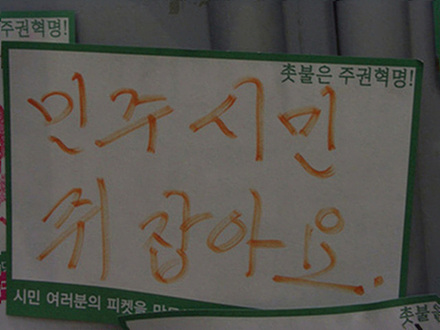 주권혁명!
촛불은 주권혁명!
민주시민
쥐 잡아요.
시민 여러분의 피켓을
촛불은